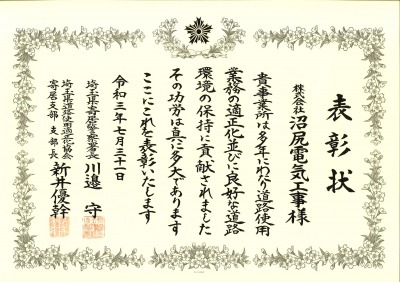 表彰状
株式会社 沼尻電気工事様
貴事業所は多年にわたり道路使用
業務の適正化並びに良好な道路
環境の保持に貢献されました
その功労は真に多大であります
ここにこれを表彰いたします
令和三年七月三十一日
埼玉県寄居警察署長 川邉守
埼玉県道路使用適正化協会
寄居支部 支部長 新井優幹